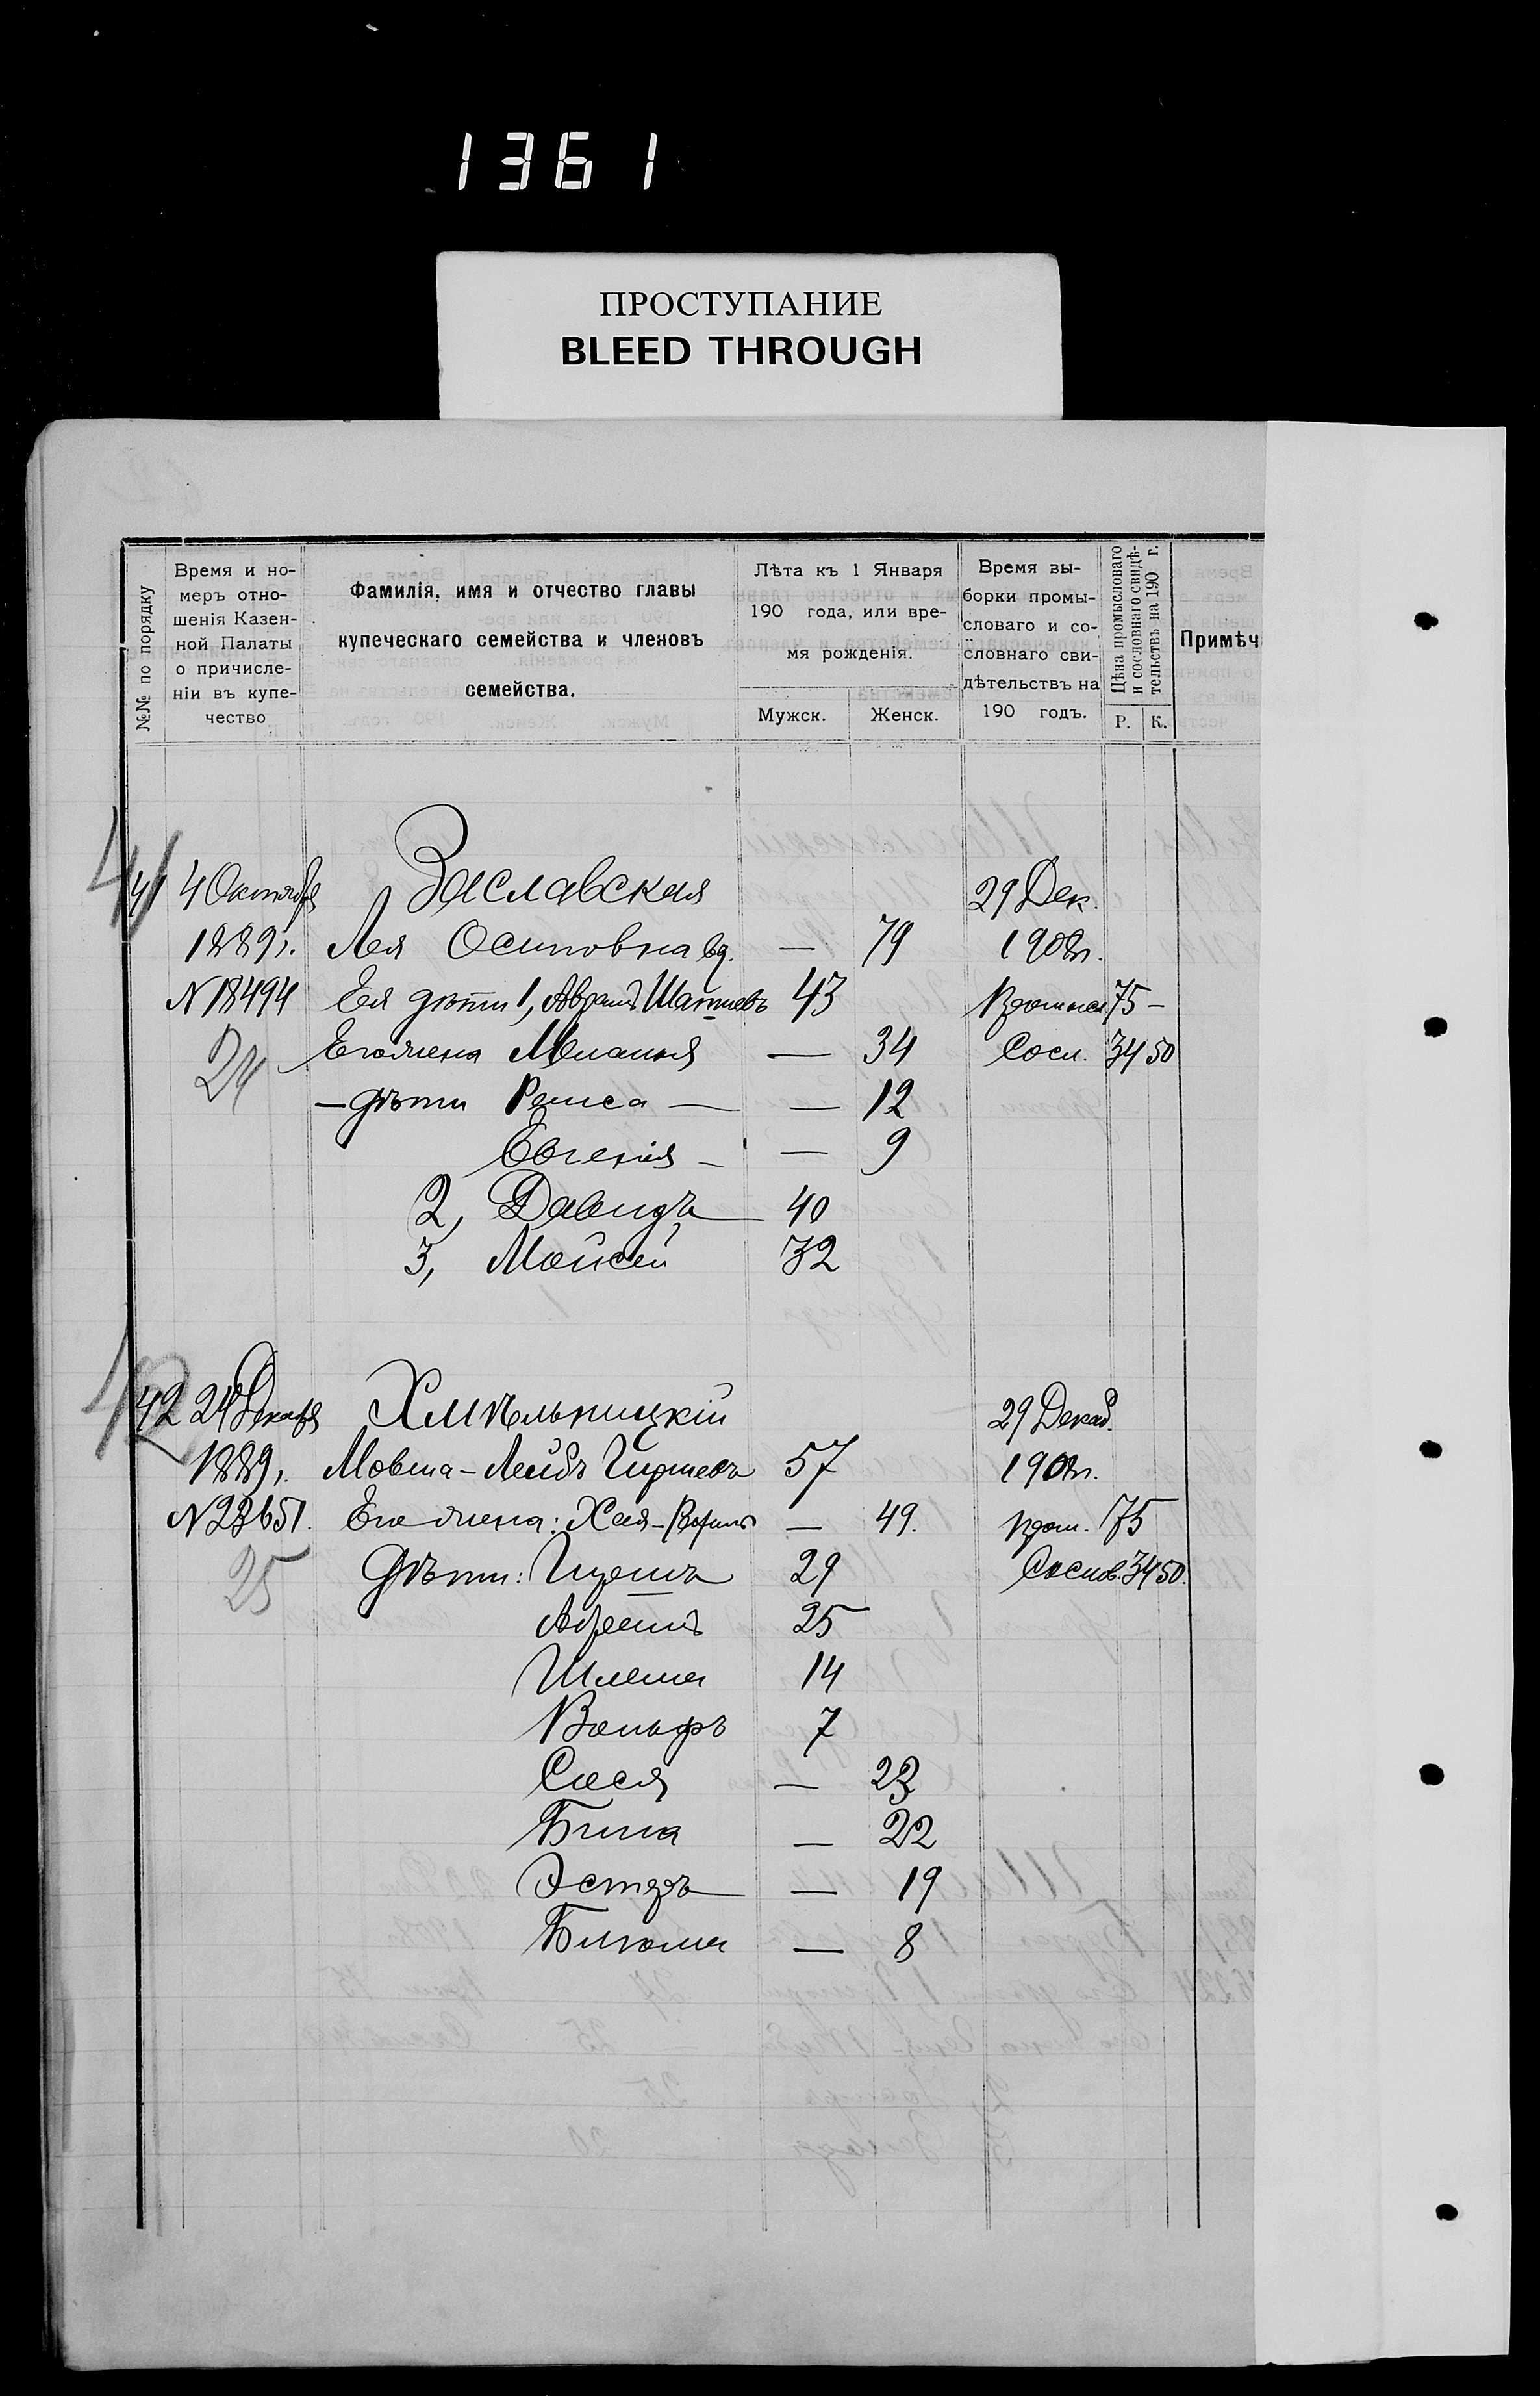 1361
ПРОСТУПАНИЕ
BLEED THROUGH
№№ по порядку
Время и но-
меръ отно-
шенія Казен-
ной Палаты
о причисле-
ніи въ купе-
чество
Фамилія, имя и отчество главы
купеческаго семейства и членовъ
семейства.
Лѣта къ 1 Января
190 года, или вре-
мя рожденія.
Мужск. Женск.
Время вы-
борки промы-
словаго и со-
словнаго сви-
дѣтельствъ на
190 годъ.
Цѣна промысловаго
и сословнаго свидѣ-
тельствъ на 190 г.
Р. К.
Примѣч
41 41 4 Октября Заславская 29 Дек.
1889г. Лея Осиповна вд. — 79 1908г.
N 18494 Ея дѣти 1, Абрамъ 43 Промысл. 75 —
24 Его жена — 34 Сосл. 34 50
— дѣти Раиса — — 12
Евгенія — — 9
2, Давидъ 40
3, Мойсей 32
42 42 24 Декабря Хмѣльницкій 29 Декаб.
1889г. Мовша-Лейбъ Гиршевъ 57 1908г.
N 23651. Его жена: Хая- — 49. пром. 75
25 Дѣти: 29 Сослов. 34 50.
Абрамъ 25
Шлема 14
Вольфъ 7
Сося — 23
— 22
Эстеръ — 19
— 8